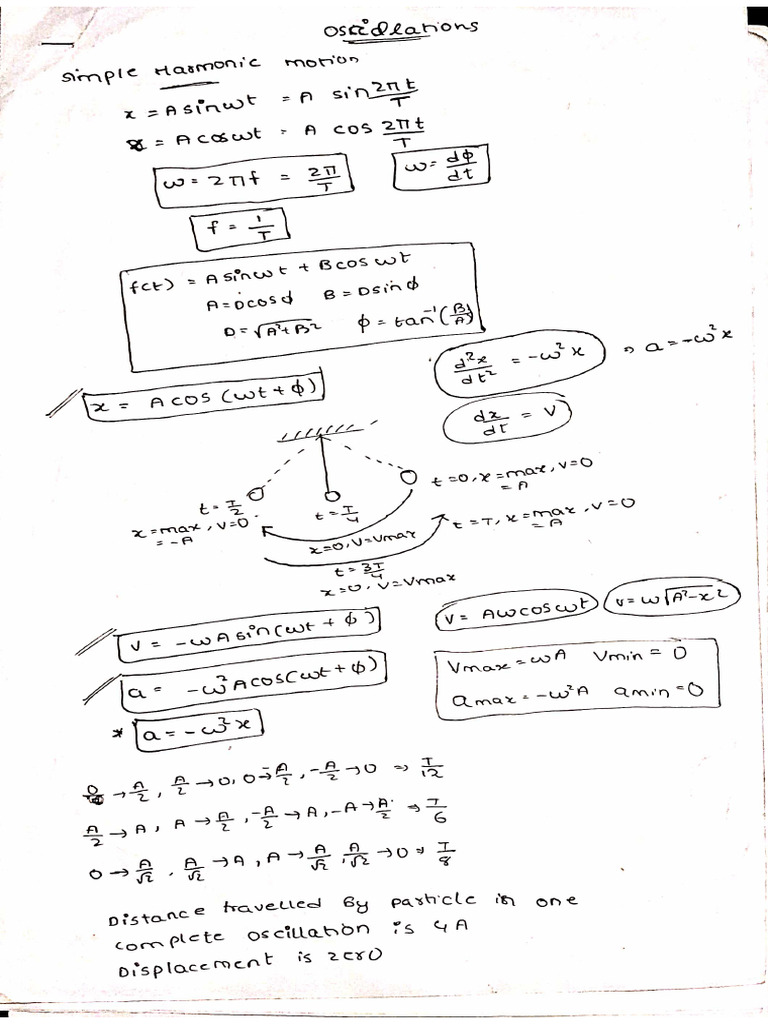 Oscillations
Simple Harmonic motion
x = A sinωt = A sin 2πt/T
x = A cosωt = A cos 2πt/T
ω = 2πf = 2π/T
ω = dφ/dt
f = 1/T
f(t) = A sinωt + B cosωt
A = Dcosφ B = Dsinφ
D = √A²+B² φ = tan⁻¹(B/A)
d²x/dt² = -ω²x ⇒ a = -ω²x
x = A cos (ωt + φ)
dx/dt = v
t=0, x=max, v=0
= A
t = T/2
x=max, v=0.
= -A
t = T/4
x=0, v=vmax
t=T, x=max, v=0
= A
t = 3T/4
x=0, v=vmax
v = -ωA sin(ωt + φ)
v = Aωcosωt
v = ω√A²-x²
a = -ω²A cos(ωt + φ)
Vmax = ωA Vmin = 0
amax = -ω²A amin = 0
* a = -ω²x
0 → A/2, A/2 → 0, 0 → -A/2, -A/2 → 0 ⇒ T/12
A/2 → A, A → A/2, -A/2 → A, -A → A/2 ⇒ T/6
0 → A/√2, A/√2 → A, A → A/√2, A/√2 → 0 ⇒ T/8
Distance travelled By particle in one
complete oscillation is 4A
Displacement is zero